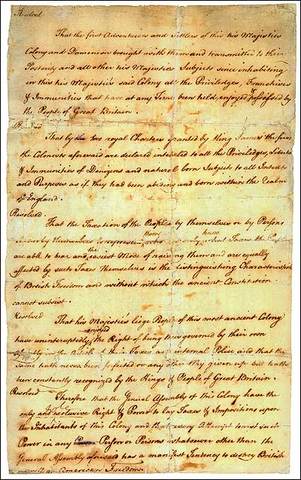 Resolved
That the first Adventurers and Settlers of this his Majesties
Colony and Dominion brought with them and transmitted to their
Posterity and all other his Majesties Subjects since inhabiting
in this his Majesties said Colony all the Priviledges, Franchises
& Immunities that have at any Time been held, enjoyed, & possessed by
the People of Great Britain.
That by two royal Charters granted by King James the first
the Colonists aforesaid are declared intituled to all the Priviledges, Liberties
& Immunities of Denizens and natural born Subjects to all Intents
and Purposes as if they had been abiding and born within the Realm
of England.
Resolved
That the Taxation of the People by themselves or by Persons
chosen by themselves to represent them who can only know what Taxes the People
are able to bear and the easiest Mode of raising them and are equally
affected by such Taxes themselves is the distinguishing Characteristick
of British Freedom and without which the ancient Constitution
cannot subsist.
Resolved
That his Majesties liege People of this most ancient Colony
have uninterruptedly enjoyed the Right of being thus governed by their own
Assembly in the Article of their Taxes and internal Police and that the
same hath never been forfeited or any other Way given up but hath
been constantly recognized by the Kings & People of Great Britain.
Resolved
Therefore that the General Assembly of this Colony have the
only and exclusive Right & Power to lay Taxes & Impositions upon
the Inhabitants of this Colony and that every Attempt to vest such
Power in any Person or Persons whatsoever other than the
General Assembly aforesaid has a manifest Tendency to destroy British
as well as American Freedom.